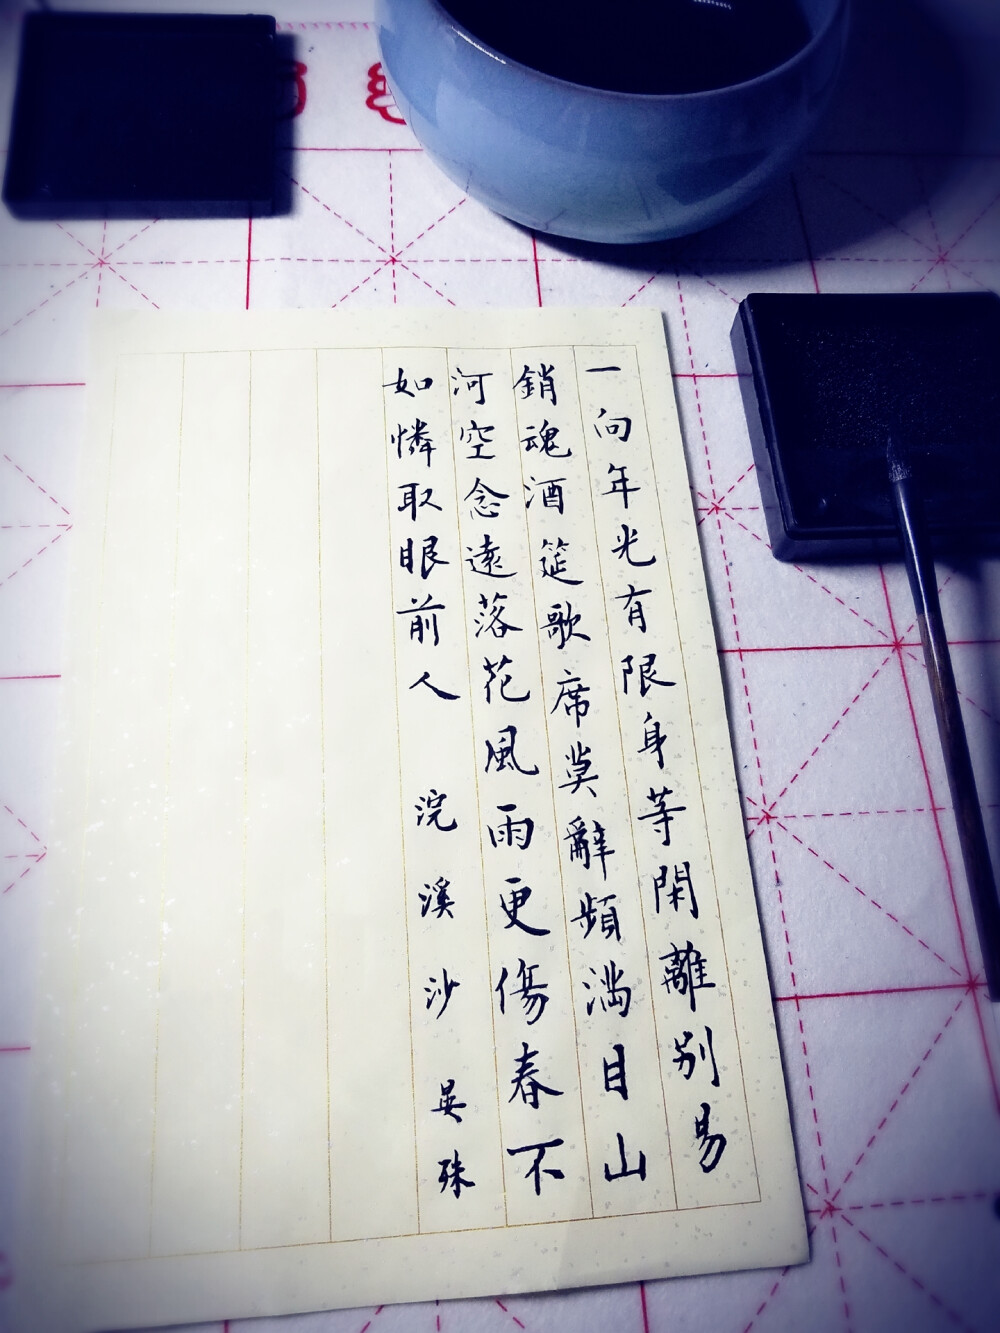 一向年光有限身等閑離別易
銷魂酒筵歌席莫辭頻滿目山
河空念遠落花風雨更傷春不
如憐取眼前人 浣溪沙 晏殊